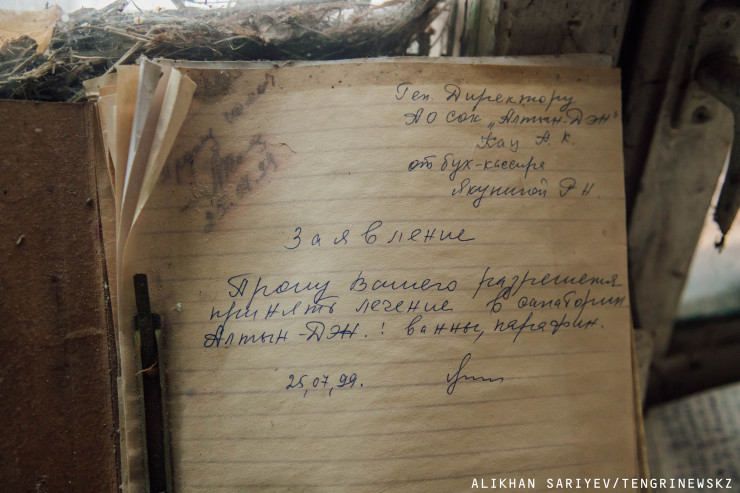 Ген. Директору
АО СОК „Алтын-Дэн"
Кац А. К.
от бух-кассира
Якуниной Р Н.
Заявление
Прошу Вашего разрешения
принять лечение в санатории
Алтын-Дэн. : ванны, парафин.
25,07,99.
ALIKHAN SARIYEV/TENGRINEWSKZ